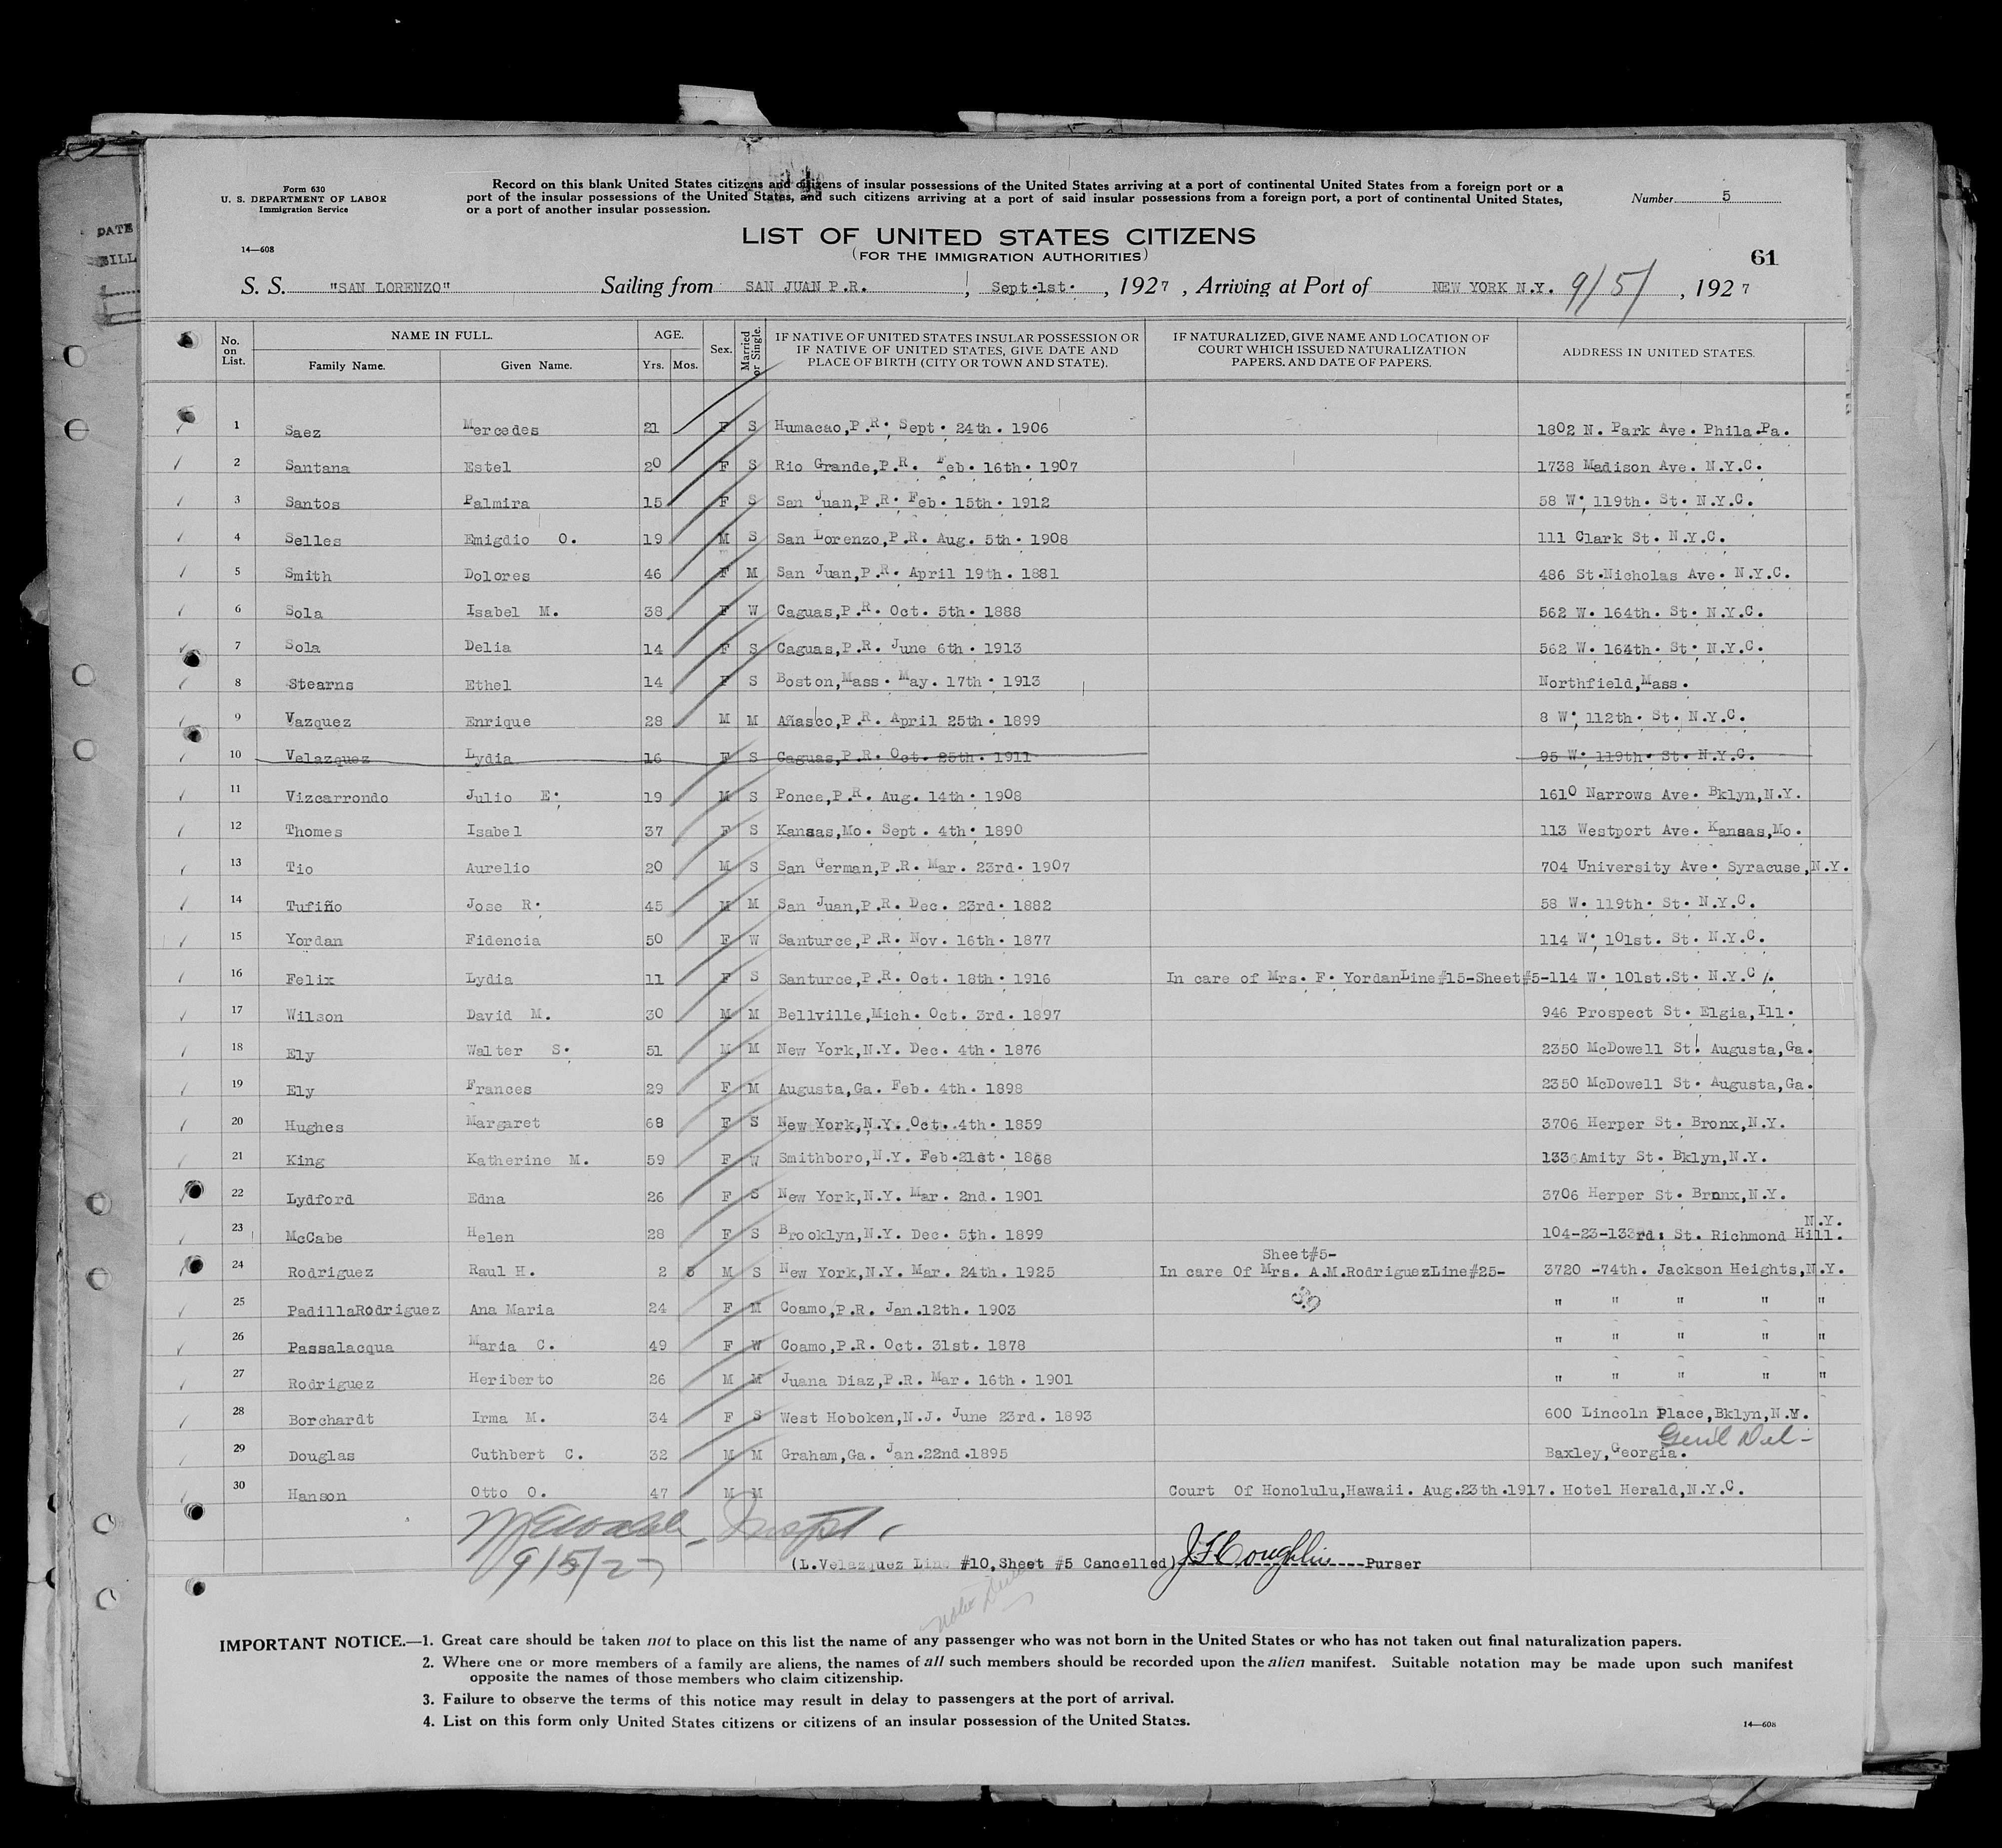 Form 630
U. S. DEPARTMENT OF LABOR
Immigration Service
14—608
Record on this blank United States citizens and citizens of insular possessions of the United States arriving at a port of continental United States from a foreign port or a
port of the insular possessions of the United States, and such citizens arriving at a port of said insular possessions from a foreign port, a port of continental United States,
or a port of another insular possession.
Number 5
DATE
LIST OF UNITED STATES CITIZENS
(FOR THE IMMIGRATION AUTHORITIES)
61
S. S. "SAN LORENZO" Sailing from SAN JUAN P.R. , Sept.1st. , 1927 , Arriving at Port of NEW YORK N.Y. 9/5/ , 1927
No. on List. NAME IN FULL. Family Name. Given Name. AGE. Yrs. Mos. Sex. Married or Single. IF NATIVE OF UNITED STATES INSULAR POSSESSION OR IF NATIVE OF UNITED STATES, GIVE DATE AND PLACE OF BIRTH (CITY OR TOWN AND STATE). IF NATURALIZED, GIVE NAME AND LOCATION OF COURT WHICH ISSUED NATURALIZATION PAPERS, AND DATE OF PAPERS. ADDRESS IN UNITED STATES.
1 Saez Mercedes 21 F S Humacao,P.R. Sept. 24th. 1906 1802 N. Park Ave. Phila.Pa.
2 Santana Estel 20 F S Rio Grande,P.R. Feb. 16th. 1907 1738 Madison Ave. N.Y.C.
3 Santos Palmira 15 F S San Juan,P.R. Feb. 15th. 1912 58 W. 119th. St. N.Y.C.
4 Selles Emigdio O. 19 M S San Lorenzo,P.R. Aug. 5th. 1908 111 Clark St. N.Y.C.
5 Smith Dolores 46 F M San Juan,P.R. April 19th. 1881 486 St.Nicholas Ave. N.Y.C.
6 Sola Isabel M. 38 F W Caguas,P.R. Oct. 5th. 1888 562 W. 164th. St. N.Y.C.
7 Sola Delia 14 F S Caguas,P.R. June 6th. 1913 562 W. 164th. St. N.Y.C.
8 Stearns Ethel 14 F S Boston,Mass. May. 17th. 1913 Northfield,Mass.
9 Vazquez Enrique 28 M M Añasco,P.R. April 25th. 1899 8 W. 112th. St. N.Y.C.
10 Velazquez Lydia 16 F S Caguas,P.R. Oct. 25th. 1911 95 W. 119th. St. N.Y.C.
11 Vizcarrondo Julio E. 19 M S Ponce,P.R. Aug. 14th. 1908 1610 Narrows Ave. Bklyn,N.Y.
12 Thomes Isabel 37 F S Kansas,Mo. Sept. 4th. 1890 113 Westport Ave. Kansas,Mo.
13 Tio Aurelio 20 M S San German,P.R. Mar. 23rd. 1907 704 University Ave. Syracuse,N.Y.
14 Tufiño Jose R. 45 M M San Juan,P.R. Dec. 23rd. 1882 58 W. 119th. St. N.Y.C.
15 Yordan Fidencia 50 F W Santurce,P.R. Nov. 16th. 1877 114 W. 101st. St. N.Y.C.
16 Felix Lydia 11 F S Santurce,P.R. Oct. 18th. 1916 In care of Mrs. F. YordanLine#15-Sheet#5-114 W. 101st.St. N.Y.C.
17 Wilson David M. 30 M M Bellville,Mich. Oct. 3rd. 1897 946 Prospect St. Elgia,Ill.
18 Ely Walter S. 51 M M New York,N.Y. Dec. 4th. 1876 2350 McDowell St. Augusta,Ga.
19 Ely Frances 29 F M Augusta,Ga. Feb. 4th. 1898 2350 McDowell St. Augusta,Ga.
20 Hughes Margaret 68 F S New York,N.Y. Oct. 4th. 1859 3706 Herper St. Bronx,N.Y.
21 King Katherine M. 59 F W Smithboro,N.Y. Feb.21st. 1868 133 Amity St. Bklyn,N.Y.
22 Lydford Edna 26 F S New York,N.Y. Mar. 2nd. 1901 3706 Herper St. Bronx,N.Y.
23 McCabe Helen 28 F S Brooklyn,N.Y. Dec. 5th. 1899 104-23-133rd. St. Richmond Hill. N.Y.
24 Rodriguez Raul H. 2 5 M S New York,N.Y. Mar. 24th. 1925 In care Of Mrs. A.M.RodriguezLine#25- Sheet#5- 3720 -74th. Jackson Heights,N.Y.
25 PadillaRodriguez Ana Maria 24 F M Coamo,P.R. Jan.12th. 1903 " " " " "
26 Passalacqua Maria C. 49 F W Coamo,P.R. Oct. 31st. 1878 " " " " "
27 Rodriguez Heriberto 26 M M Juana Diaz,P.R. Mar. 16th. 1901 " " " " "
28 Borchardt Irma M. 34 F S West Hoboken,N.J. June 23rd. 1893 600 Lincoln Place,Bklyn,N.Y.
29 Douglas Cuthbert C. 32 M M Graham,Ga. Jan.22nd.1895 Baxley,Georgia. Genl Del-
30 Hanson Otto O. 47 M M Court Of Honolulu,Hawaii. Aug.23th.1917. Hotel Herald,N.Y.C.
Inspt.
9/5/27
(L.Velazquez Line #10,Sheet #5 Cancelled) J F Coughlin ----Purser
IMPORTANT NOTICE.—1. Great care should be taken not to place on this list the name of any passenger who was not born in the United States or who has not taken out final naturalization papers.
2. Where one or more members of a family are aliens, the names of all such members should be recorded upon the alien manifest. Suitable notation may be made upon such manifest
opposite the names of those members who claim citizenship.
3. Failure to observe the terms of this notice may result in delay to passengers at the port of arrival.
4. List on this form only United States citizens or citizens of an insular possession of the United States.
14—608